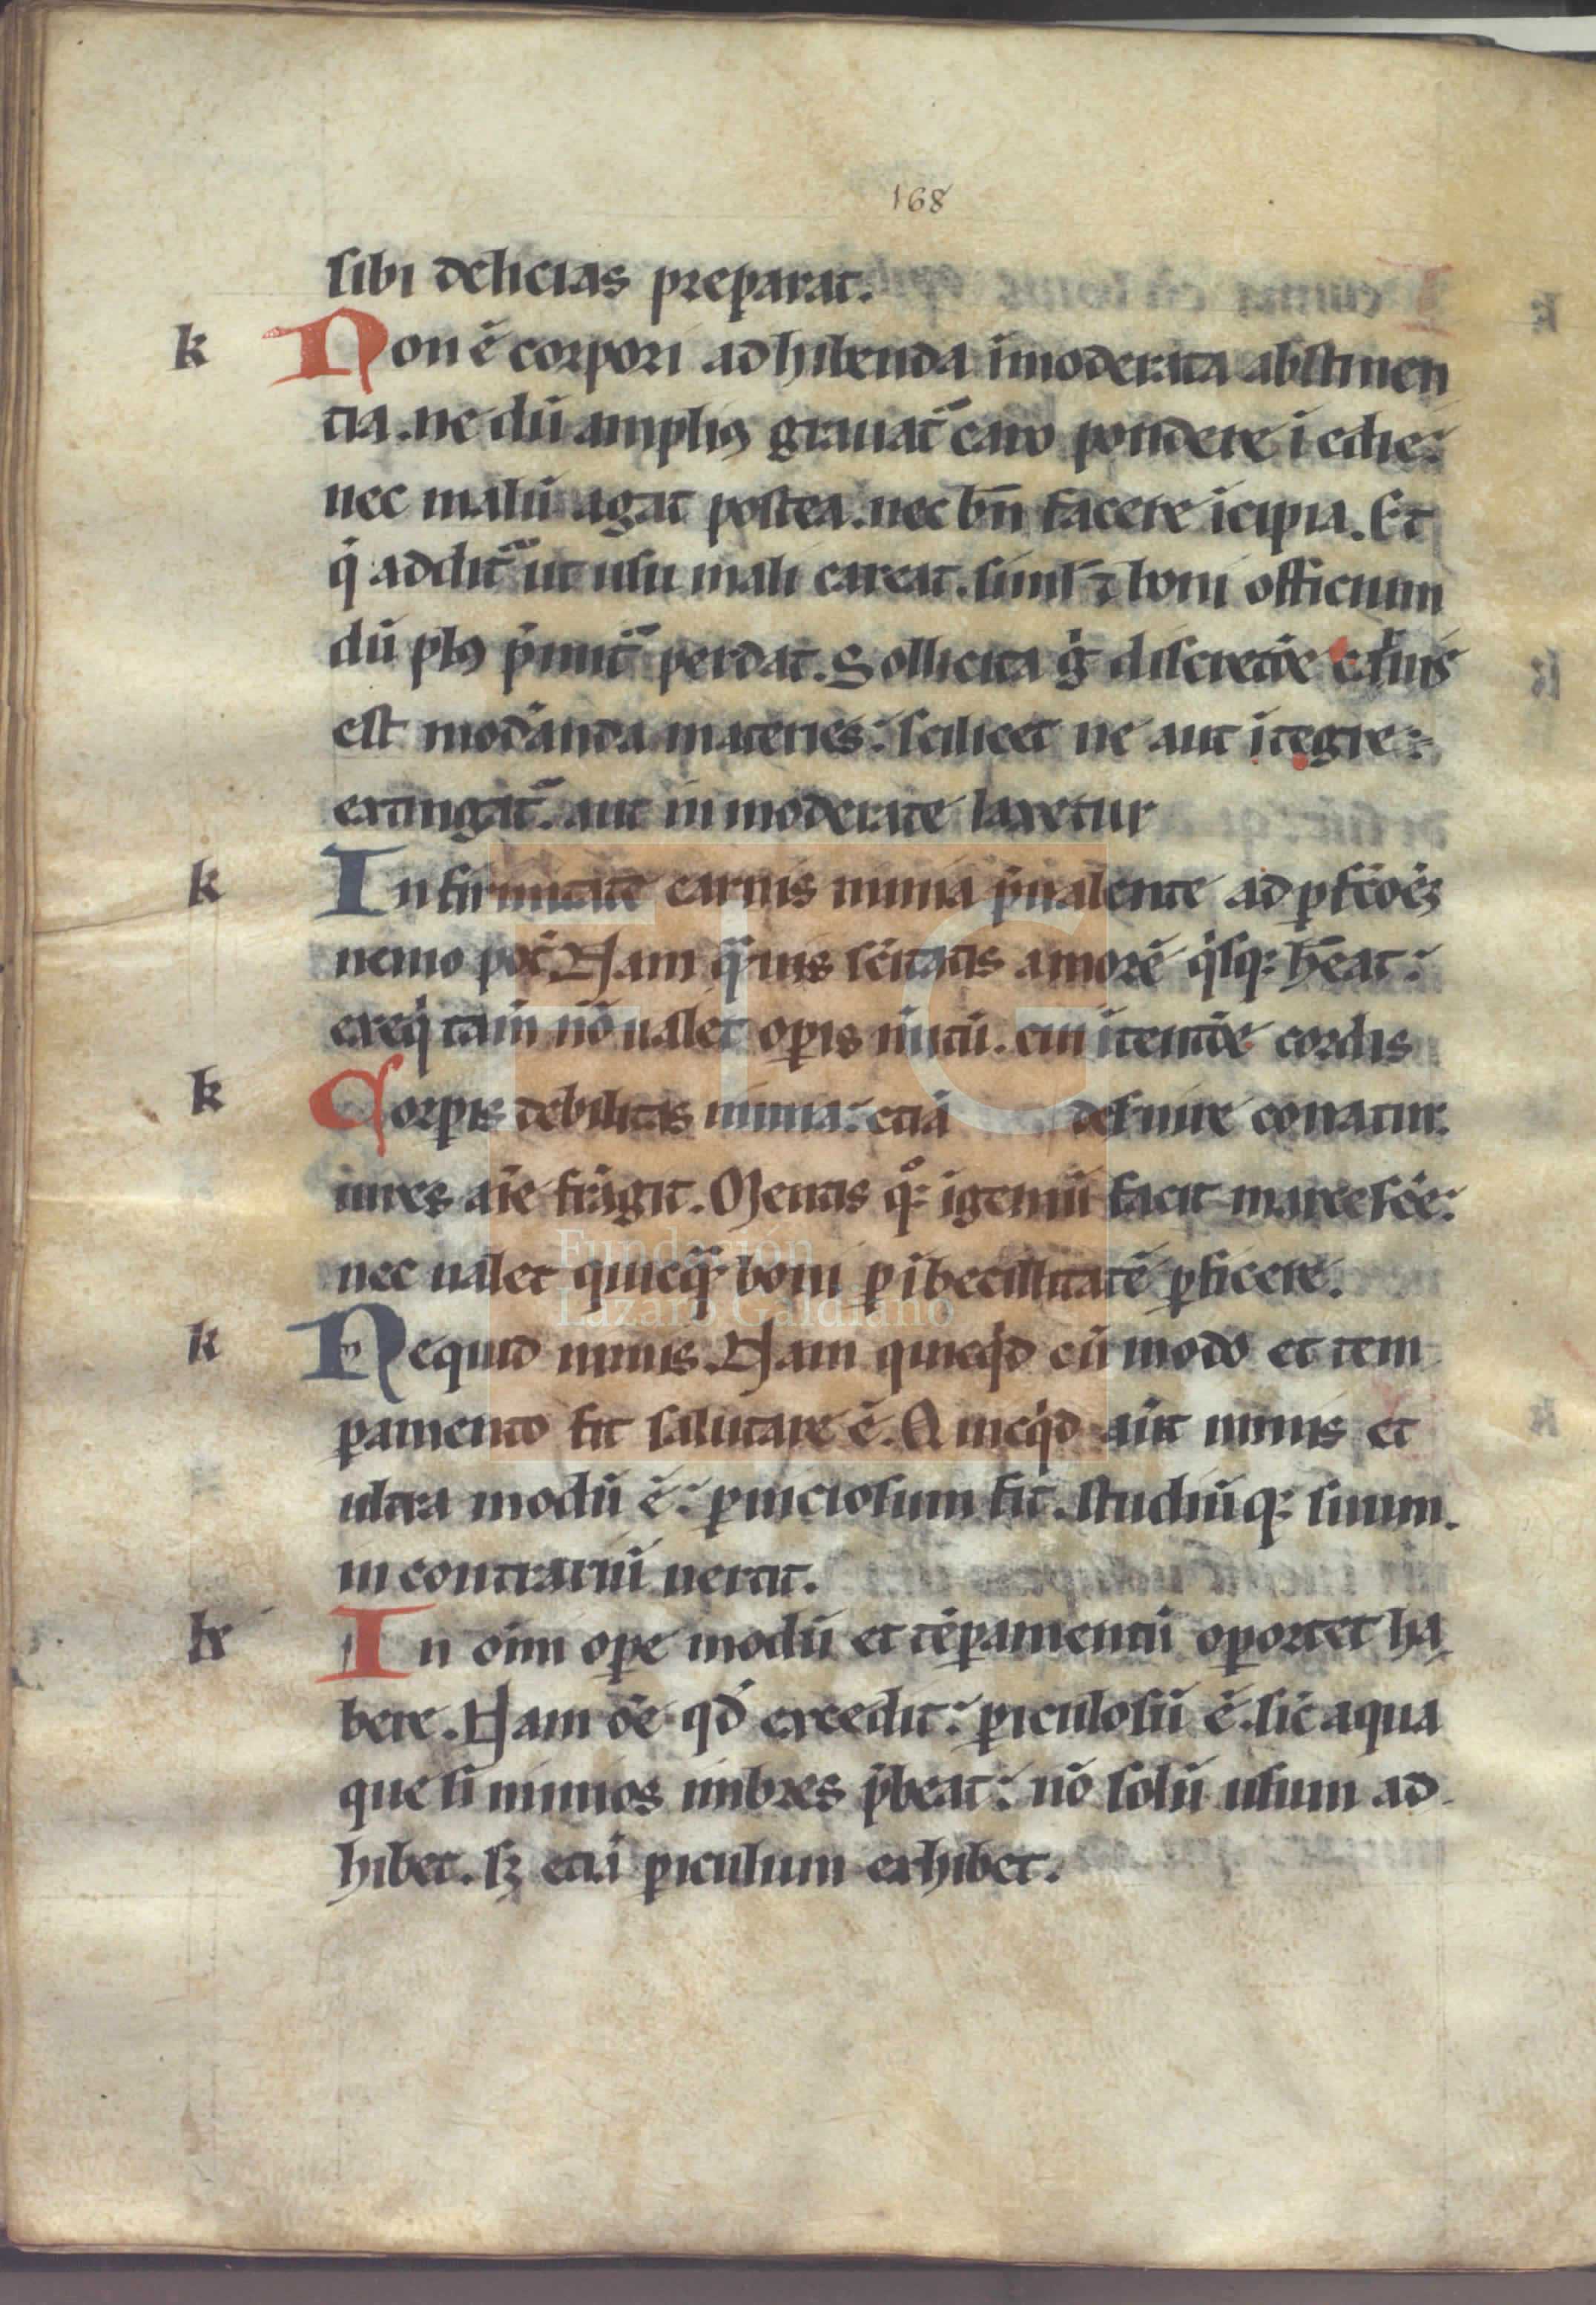 168
sibi delicias preparat.
k Non ē corpori adhibenda īmoderata abstinen
tia. ne dū amplius grauat̄ caro pondere īedie:
nec malū agat postea. nec bn̄ facere īcipia. Et
q̇ addit̄ ut usu mali careat. siml̄ ⁊ boni officium
dū plus p̄mit̄ perdat. Sollicita g̊ discretiōe carnis
est modanda materies: scilicet ne aut ītegre:
extingat̄. aut inmoderate laxetur
k Infirmitatē carnis nimia p̄ualente ad ꝑfectiōeꝫ
nemo pōt. Nam q̄uis sc̄itatis amorē q̇sq: hēat:
exeq̇ tam̄ nō ualet oꝑis
īitentiōe cordis
k Corꝑis debilitas nimia: etiā
uires aīe frāgit. Mentis q̊: īgeniū facit marcesc̄e:
nec ualet quicq̄ boni ꝑ ībecillitatē ꝑficere.
k Nequid nimis. Nam quicq̇d cū modo et tem
ꝑamento fit salutare ē. Quicq̇d aut̄ nimis et
ultra modū ē: ꝑniciosum fit. studiūq: suum.
in contrariū uertit.
k In oīni oꝑe modū et tēꝑamentū oꝑortet ha
bere. Nam oē qd̄ excedit: ꝑiculosū ē. sic̄ aqua
que si nimios imbres p̄beat: nō solū usum ad
hibet. sꝫ etiā ꝑiculum exhibet.
Fundación
Lázaro Galdiano